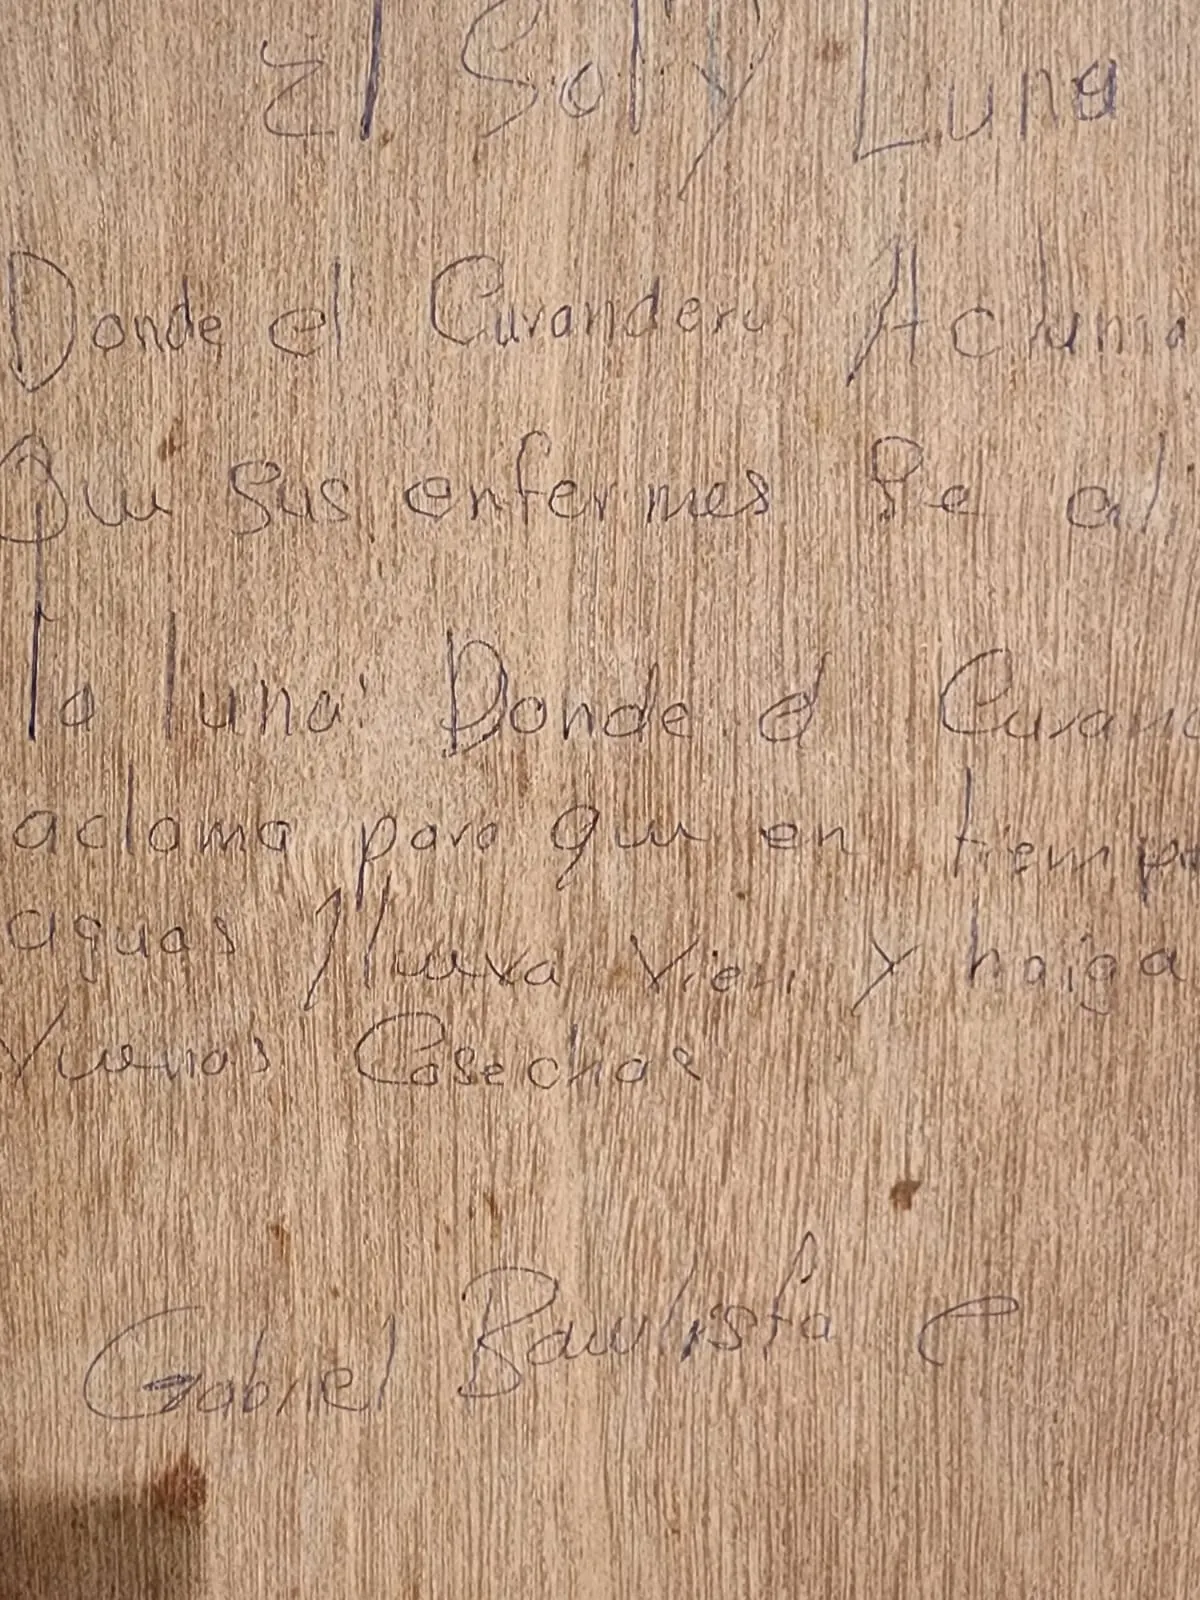 El Sol y Luna
Donde el Curandero Aclama
Que sus enfermes Se ali
la luna: Donde el Curand
acloma para que en tiempo
aguas llueva vien y haiga
vuenas Cosechas
Gabriel Bautista C